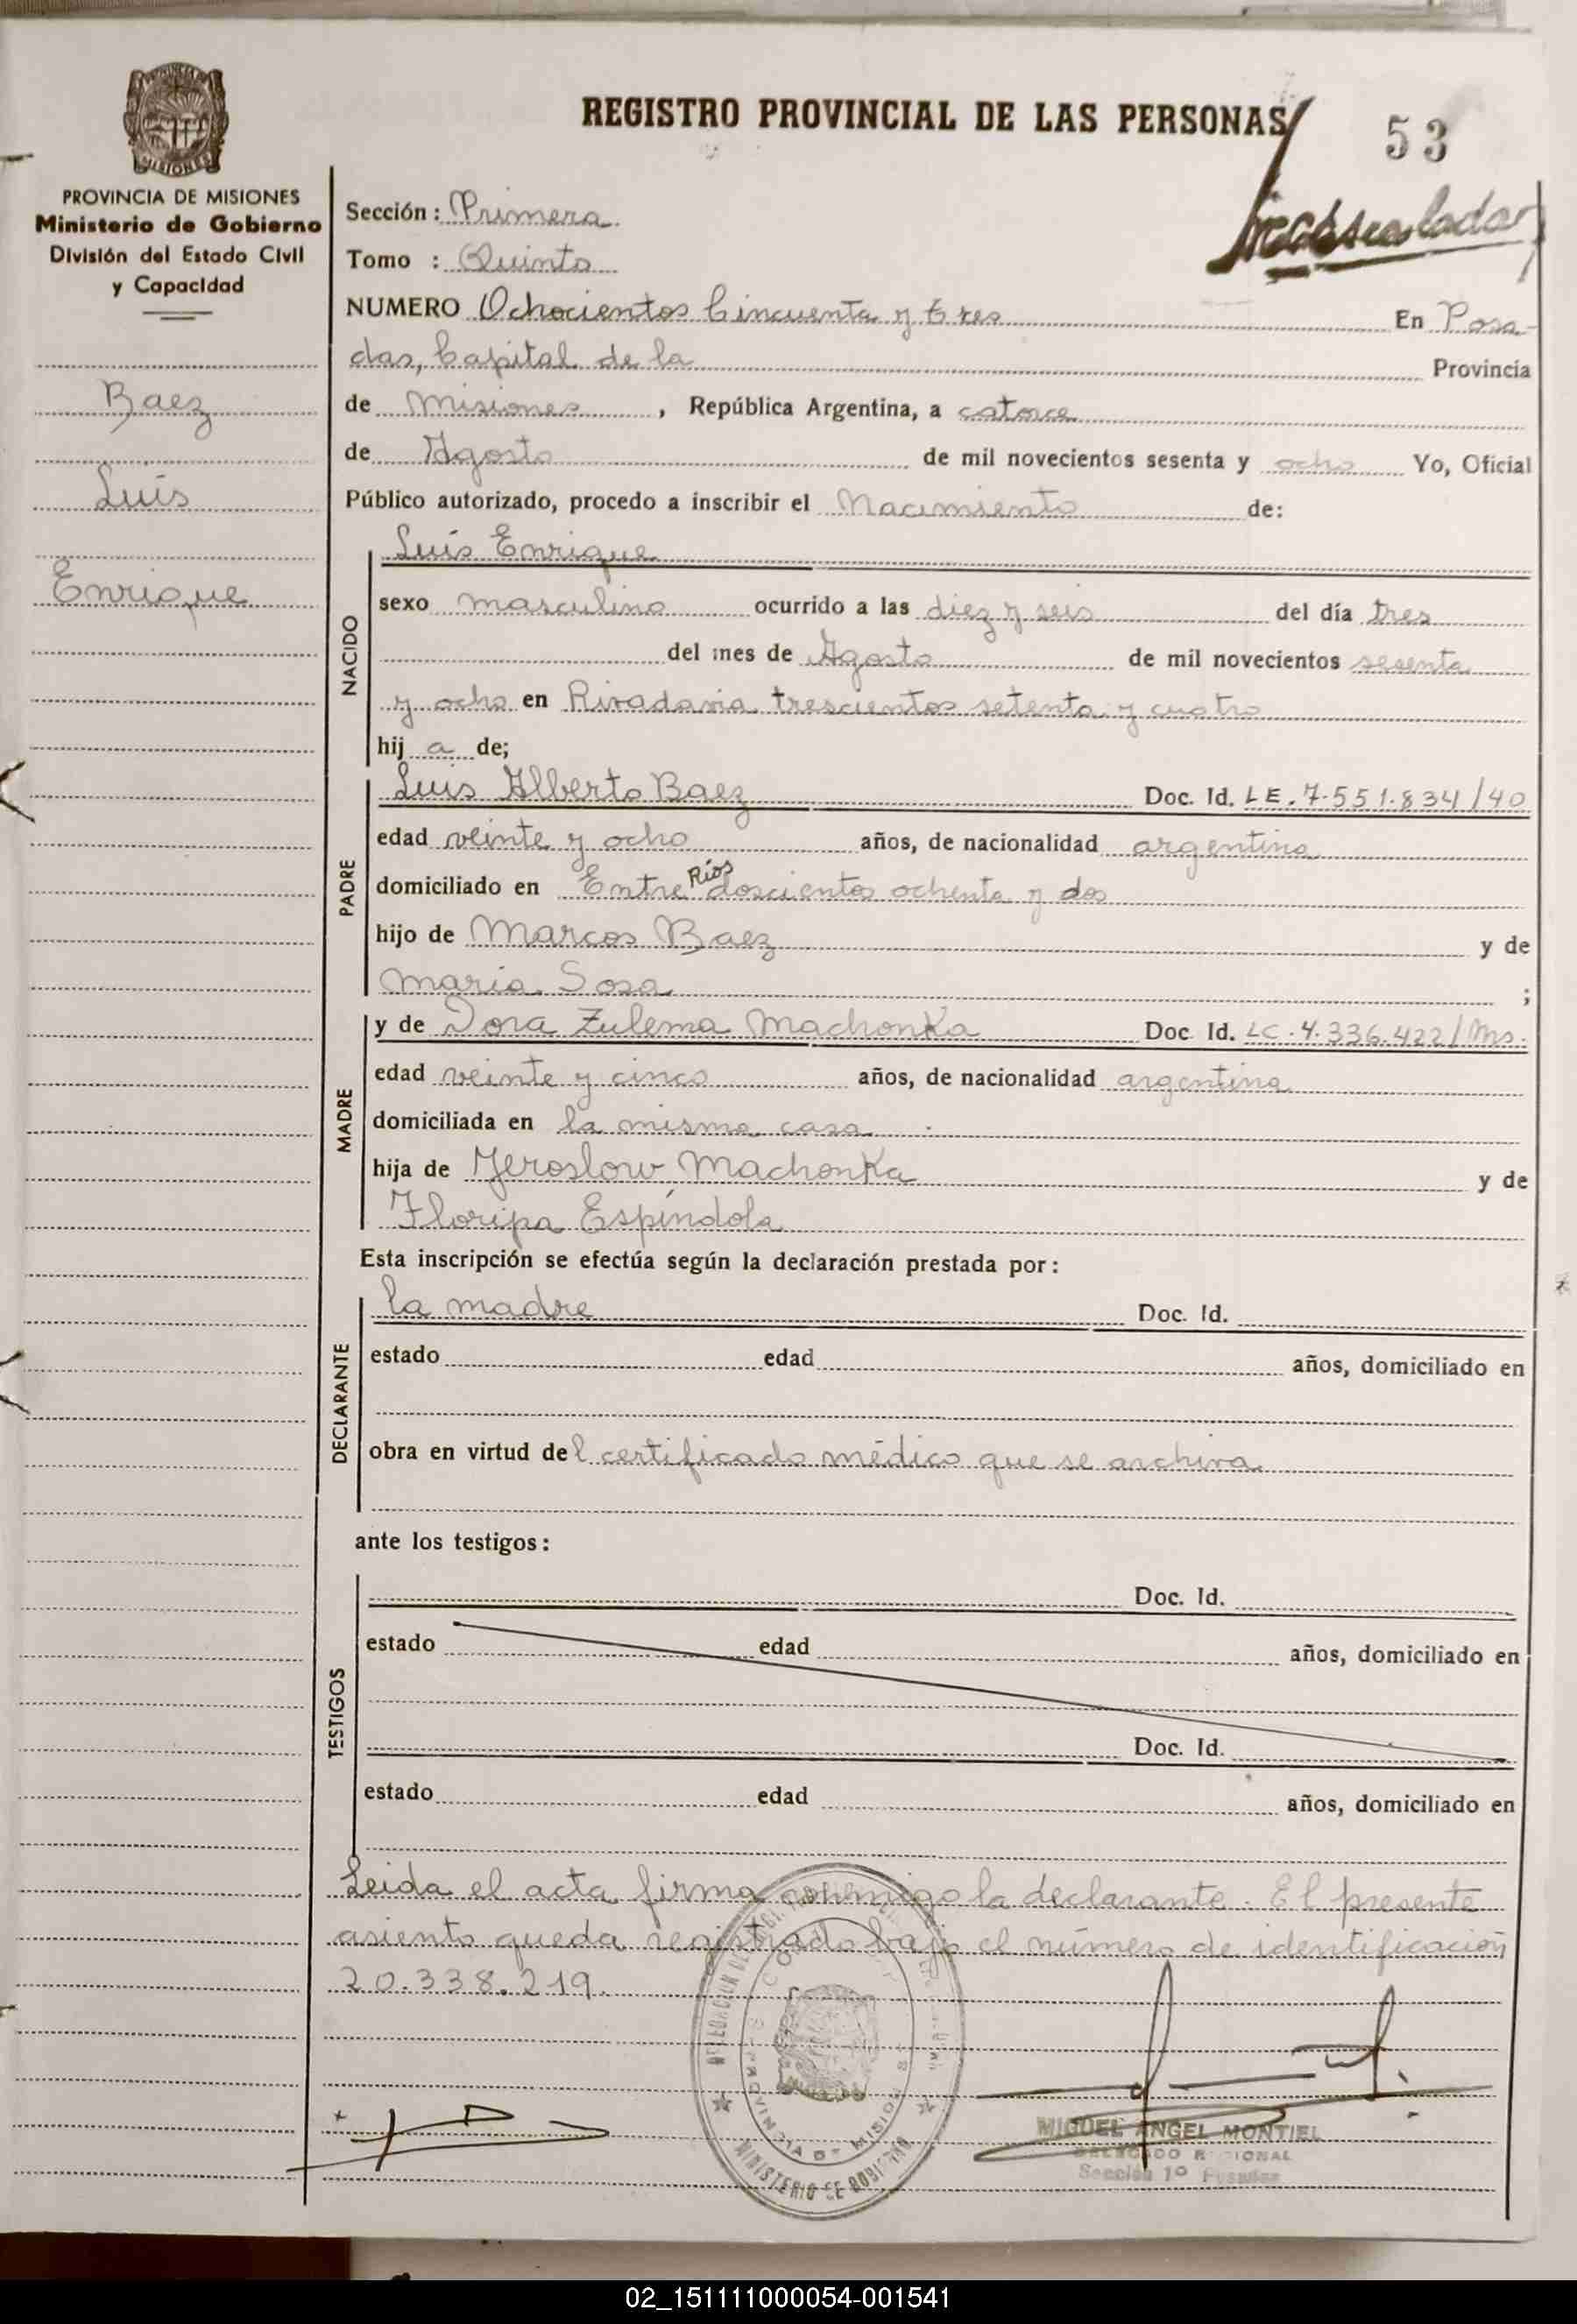 REGISTRO PROVINCIAL DE LAS PERSONAS
53
MISIONES
PROVINCIA DE MISIONES
Ministerio de Gobierno
División del Estado Civil
y Capacidad
Baez
Luis
Enrique
Sección: Primera
Tomo : Quinto
NUMERO Ochocientos Cincuenta y tres En Posa-
das, Capital de la Provincia
de Misiones, República Argentina, a catorce
de Agosto de mil novecientos sesenta y ocho Yo, Oficial
Público autorizado, procedo a inscribir el Nacimiento de:
NACIDO
Luis Enrique
sexo masculino ocurrido a las diez y seis del día tres
del mes de Agosto de mil novecientos sesenta
y ocho en Rivadavia trescientos setenta y cuatro
hij a de;
PADRE
Luis Alberto Baez Doc. Id. LE. 7.551.834/40
edad veinte y ocho años, de nacionalidad argentina
domiciliado en Entre Ríos doscientos ochenta y dos
hijo de Marcos Baez y de
Maria Sosa ;
MADRE
y de Dora Zulema Machonka Doc. Id. LC. 4.336.422/Ms.
edad veinte y cinco años, de nacionalidad argentina
domiciliada en la misma casa
hija de Jeroslow Machonka y de
Floripa Espíndola
Esta inscripción se efectúa según la declaración prestada por:
DECLARANTE
la madre Doc. Id.
estado edad años, domiciliado en
obra en virtud del certificado médico que se archiva
ante los testigos:
TESTIGOS
Doc. Id.
estado edad años, domiciliado en
Doc. Id.
estado edad años, domiciliado en
Leida el acta firma conmigo la declarante. El presente
asiento queda registrado bajo el número de identificación
20.338.219.
PROVINCIA DE MISIONES
MINISTERIO DE GOBIERNO
MIGUEL ANGEL MONTIEL
DELEGADO REGIONAL
Sección 1º Posadas
02_151111000054-001541